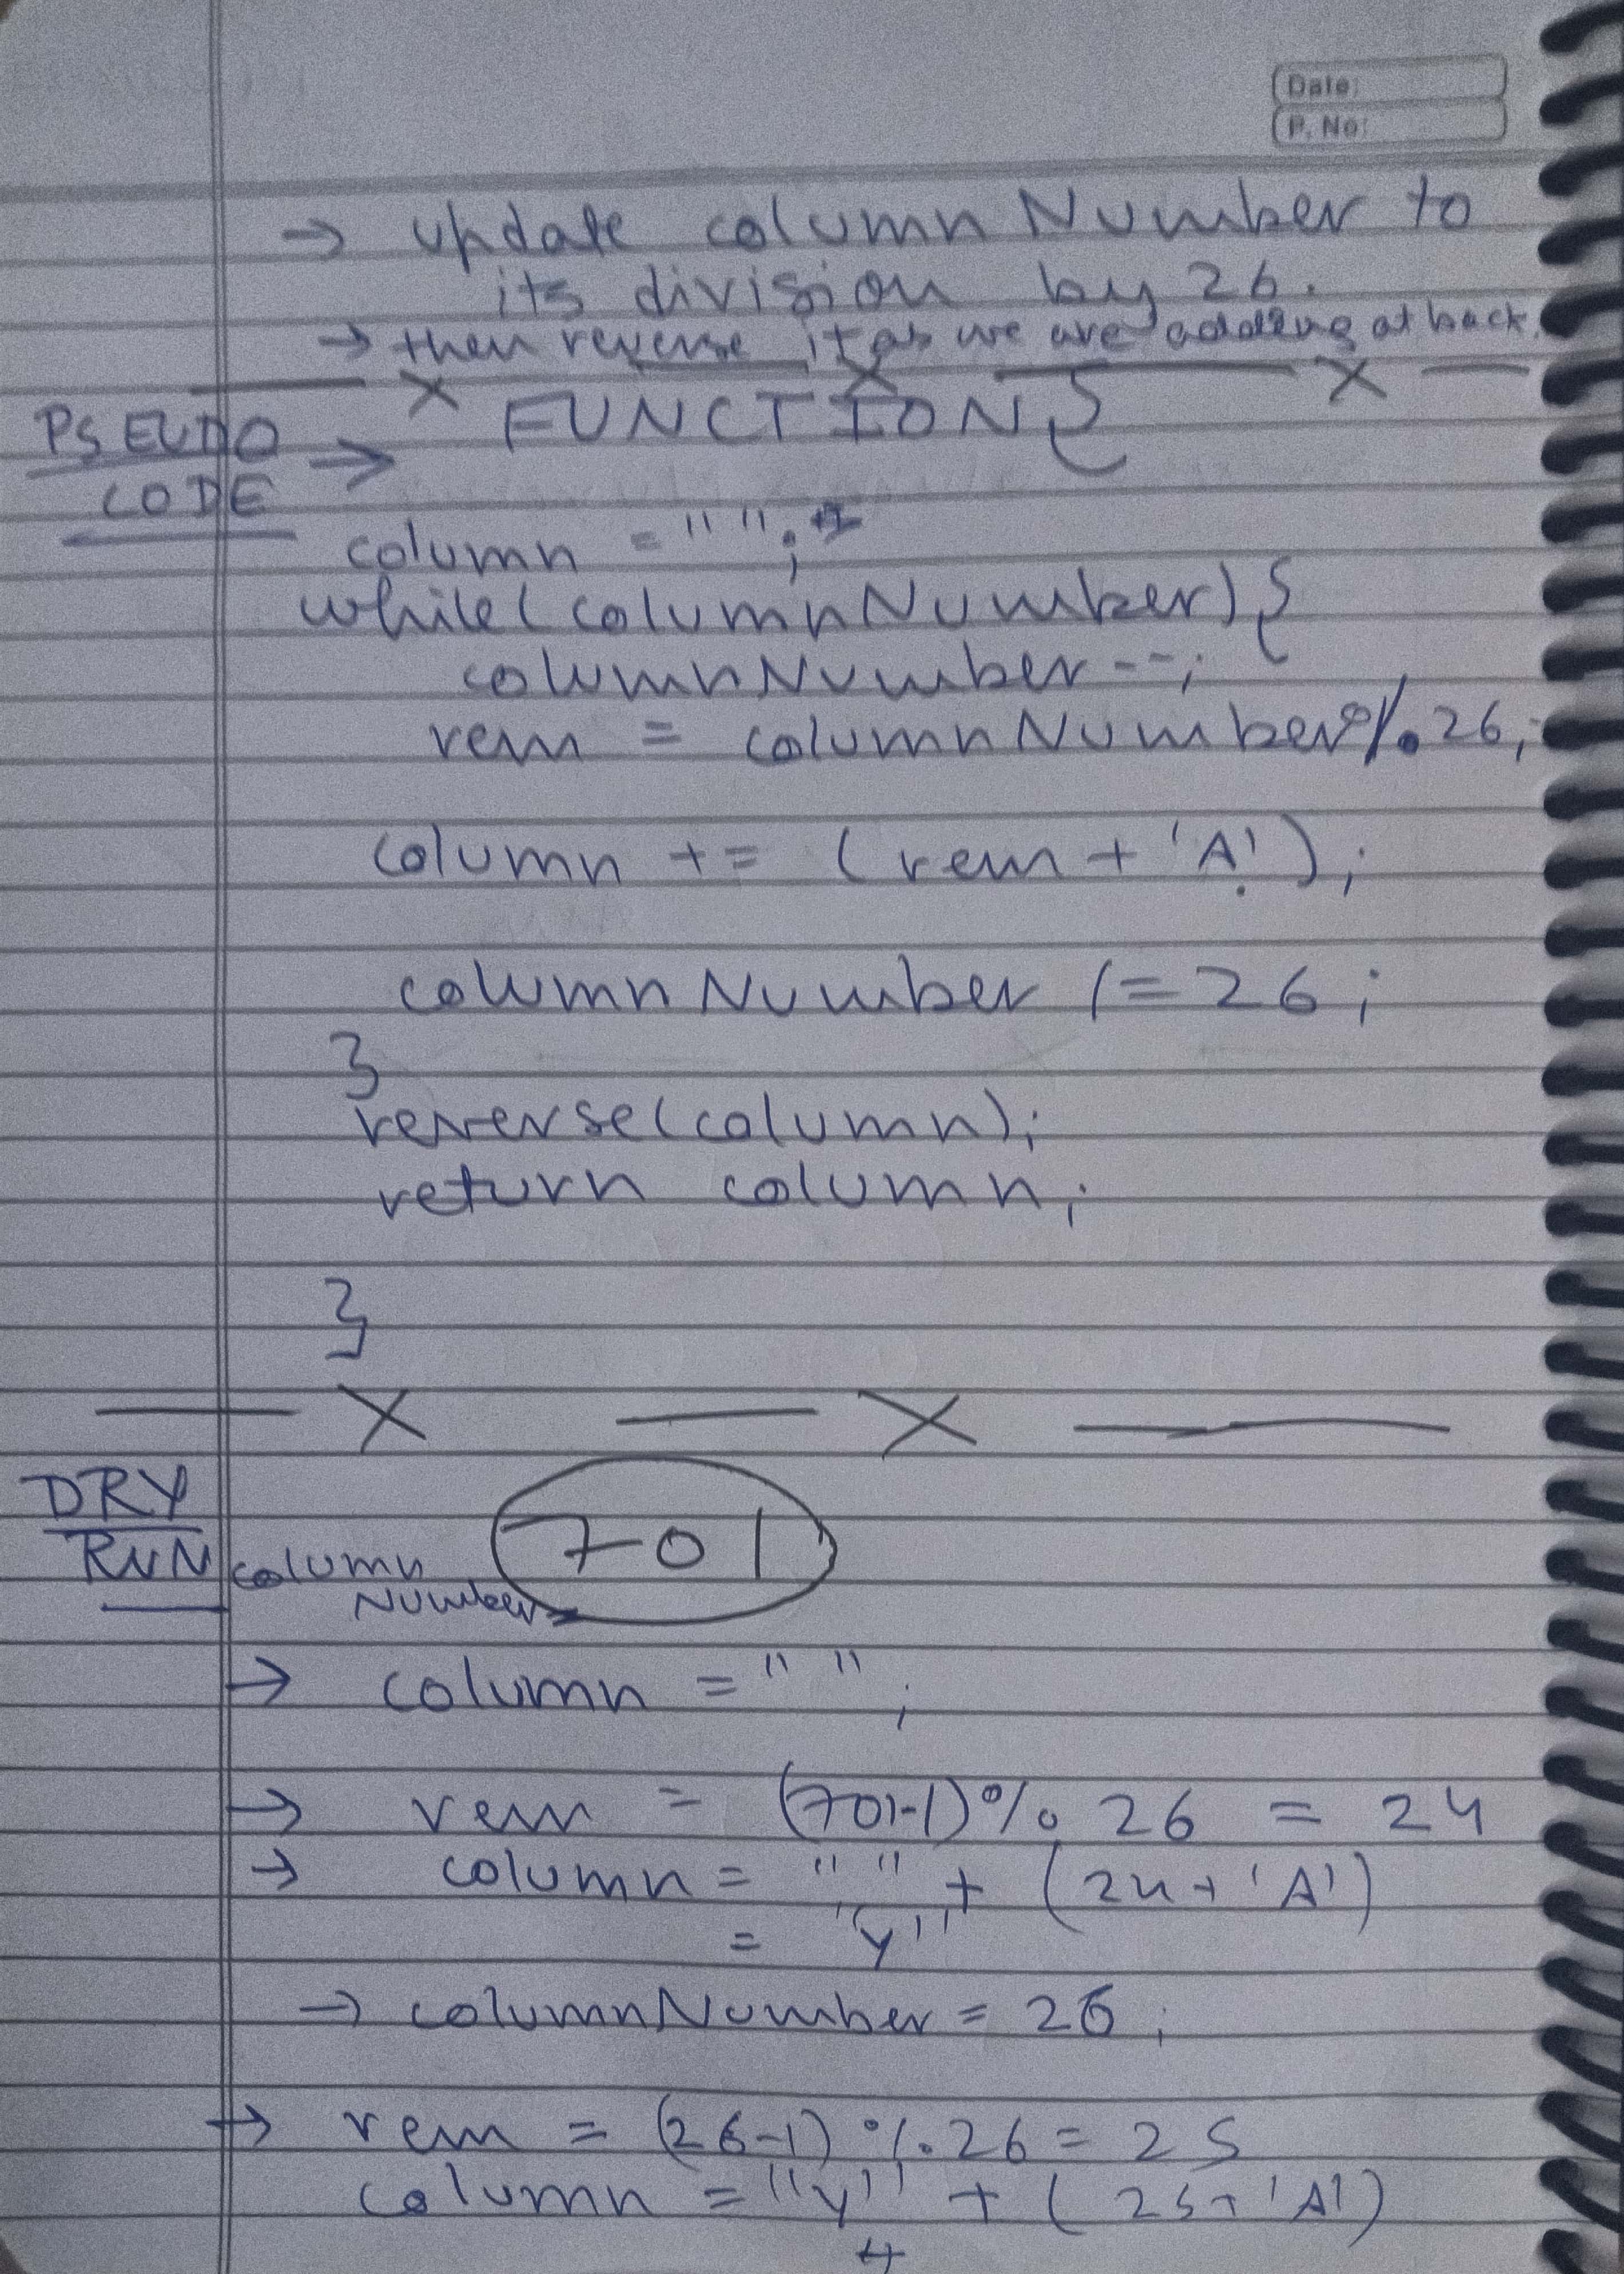 Date:
P. No:
→ update columnNumber to
its division by 26.
→ then reverse it as we are adding at back.
— X — X — X —
PSEUDO
CODE
→ FUNCTION {
column = " ";
while(columnNumber) {
columnNumber--;
rem = columnNumber % 26;
column += (rem + 'A');
columnNumber /= 26;
}
reverse(column);
return column;
}
— X — X —
DRY
RUN
column
Number =
701
→ column = " ";
→ rem = (701-1) % 26 = 24
→ column = " " + (24 + 'A')
= "Y"
→ columnNumber = 26;
→ rem = (26-1) % 26 = 25
column = "Y" + (25 + 'A')